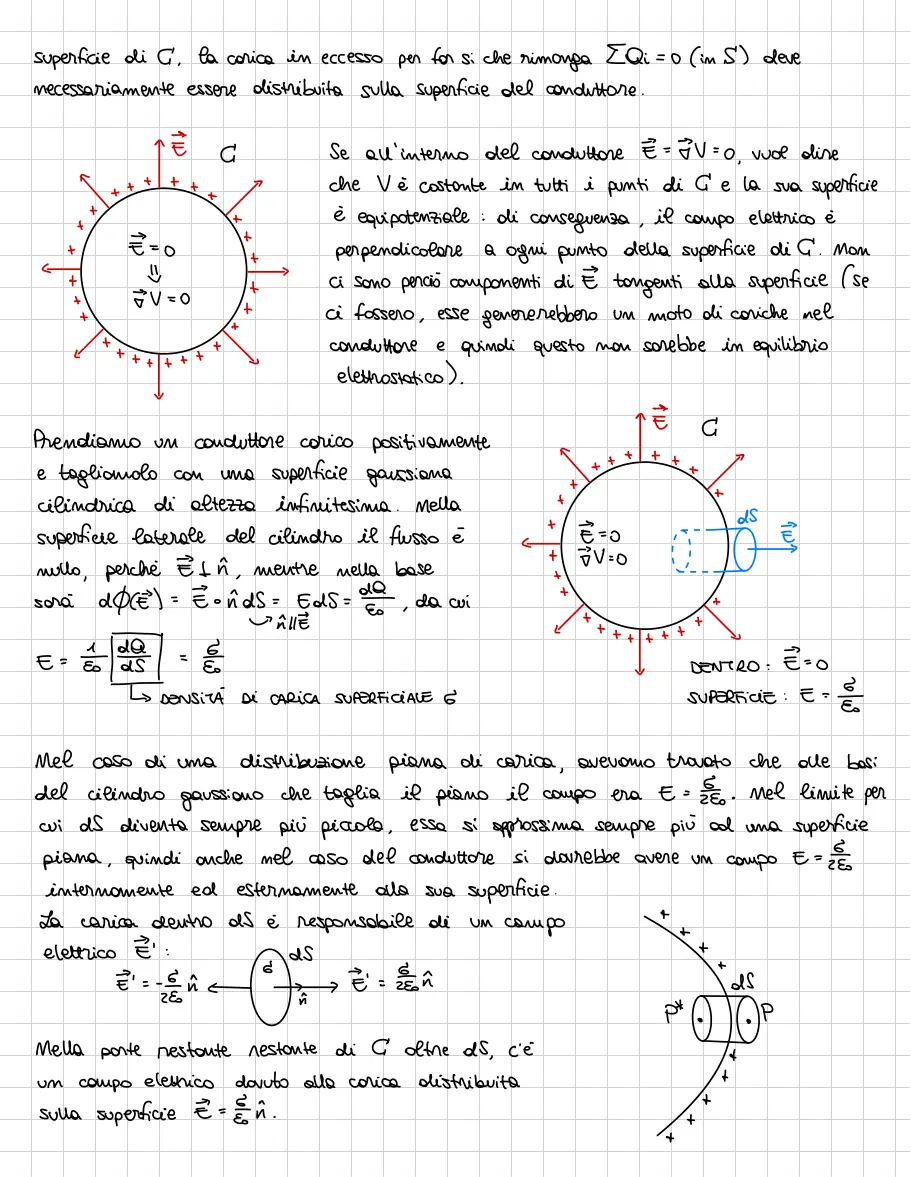 superficie di C, la carica in eccesso per far sì che rimanga ΣQi = 0 (in S) deve
necessariamente essere distribuita sulla superficie del conduttore.
E⃗
C
E⃗ = 0
⇓
∇⃗V = 0
Se all'interno del conduttore E⃗ = ∇⃗V = 0, vuol dire
che V è costante in tutti i punti di C e la sua superficie
è equipotenziale : di conseguenza, il campo elettrico è
perpendicolare a ogni punto della superficie di C. Non
ci sono perciò componenti di E⃗ tangenti alla superficie (se
ci fossero, esse genererebbero un moto di cariche nel
conduttore e quindi questo non sarebbe in equilibrio
elettrostatico).
Prendiamo un conduttore carico positivamente
e tagliamolo con una superficie gaussiana
cilindrica di altezza infinitesima. Nella
superficie laterale del cilindro il flusso è
nullo, perché E⃗ ⊥ n̂, mentre nella base
sarà dϕ(E⃗) = E⃗ • n̂ dS = E dS = dQ/ε₀, da cui
n̂ ∥ E⃗
E = 1/ε₀ dQ/dS = σ/ε₀
DENSITÀ DI CARICA SUPERFICIALE σ
E⃗
C
E⃗ = 0
∇⃗V = 0
dS
E⃗
DENTRO : E⃗ = 0
SUPERFICIE : E = σ/ε₀
Nel caso di una distribuzione piana di carica, avevamo trovato che alle basi
del cilindro gaussiano che taglia il piano il campo era E = σ/2ε₀. Nel limite per
cui dS diventa sempre più piccola, essa si approssima sempre più ad una superficie
piana, quindi anche nel caso del conduttore si dovrebbe avere un campo E = σ/2ε₀
internamente ed esternamente alla sua superficie.
La carica dentro dS è responsabile di un campo
elettrico E⃗' :
E⃗' = -σ/2ε₀ n̂
σ
dS
n̂
E⃗' = σ/2ε₀ n̂
Nella parte restante restante di C oltre dS, c'è
un campo elettrico dovuto alla carica distribuita
sulla superficie E⃗ = σ/ε₀ n̂.
dS
P* P